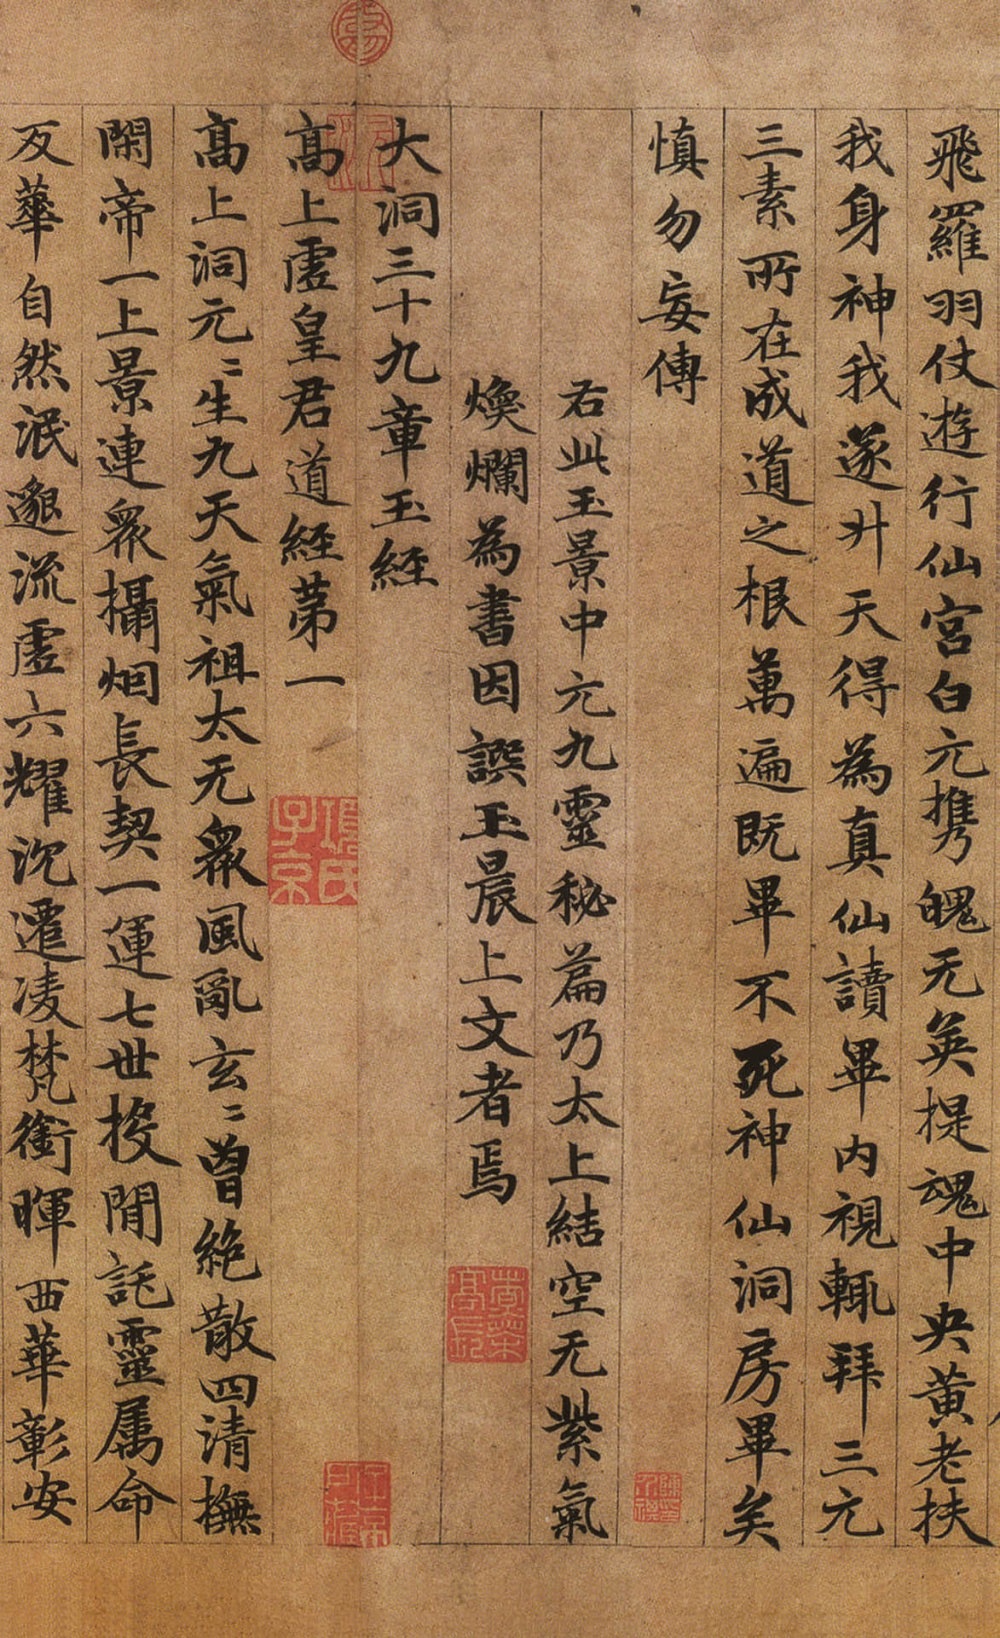 飛羅羽仗遊行仙宮白元攜魄无英提魂中央黃老扶
我身神我遂升天得為真仙讀畢內視輒拜三元
三素所在成道之根萬遍既畢不死神仙洞房畢矣
慎勿妄傳
右此玉景中元九靈秘篇乃太上結空无紫氣
煥爛為書因誤玉晨上文者焉
大洞三十九章玉經
高上虛皇君道經第一
高上洞元〻生九天氣祖太无衆風亂玄〻曾絶散四清撫
閑帝一上景連衆攝烟長契一運七世投閒託靈属命
反華自然泯邈流虛六耀沉遷凌梵衝暉西華彰安
項氏子京